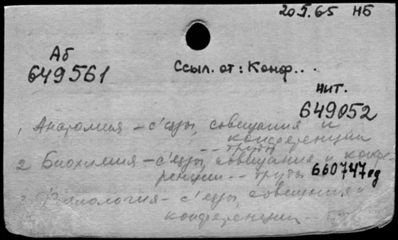 20.I.65 НБ
Аб
649561
Ссыл. от: Конф...
чит.
649052
1. Анатомия – с'езды, совещания и
конференции
-- труды
2. Биохимия – с'езды, совещания и конфе-
ренции -- труды 660747
3. Физиология – с'езды, совещания и
конференции --